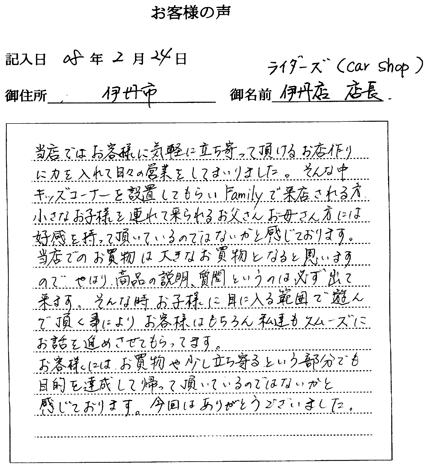 お客様の声
記入日 08 年 2 月 24 日
ライダーズ (car shop)
御住所 伊丹市 御名前 伊丹店 店長.
当店ではお客様に気軽に立ち寄って頂けるお店作り
に力を入れて日々の営業をしてまいりました。そんな中
キッズコーナーを設置してもらい Familyで来店される方
小さなお子様を連れて来られるお父さんお母さん方には
好感を持って頂いているのではないかと感じております。
当店でのお買物は大きなお買物となると思います
ので やはり 商品の説明、質問というのは必ず出て
来ます。そんな時 お子様に目に入る範囲で遊ん
で頂く事により お客様はもちろん私達もスムーズに
お話を進めさせてもらってます。
お客様には お買物や少し立ち寄るという部分でも
目的を達成して帰って頂いているのではないかと
感じております。今回はありがとうございました。